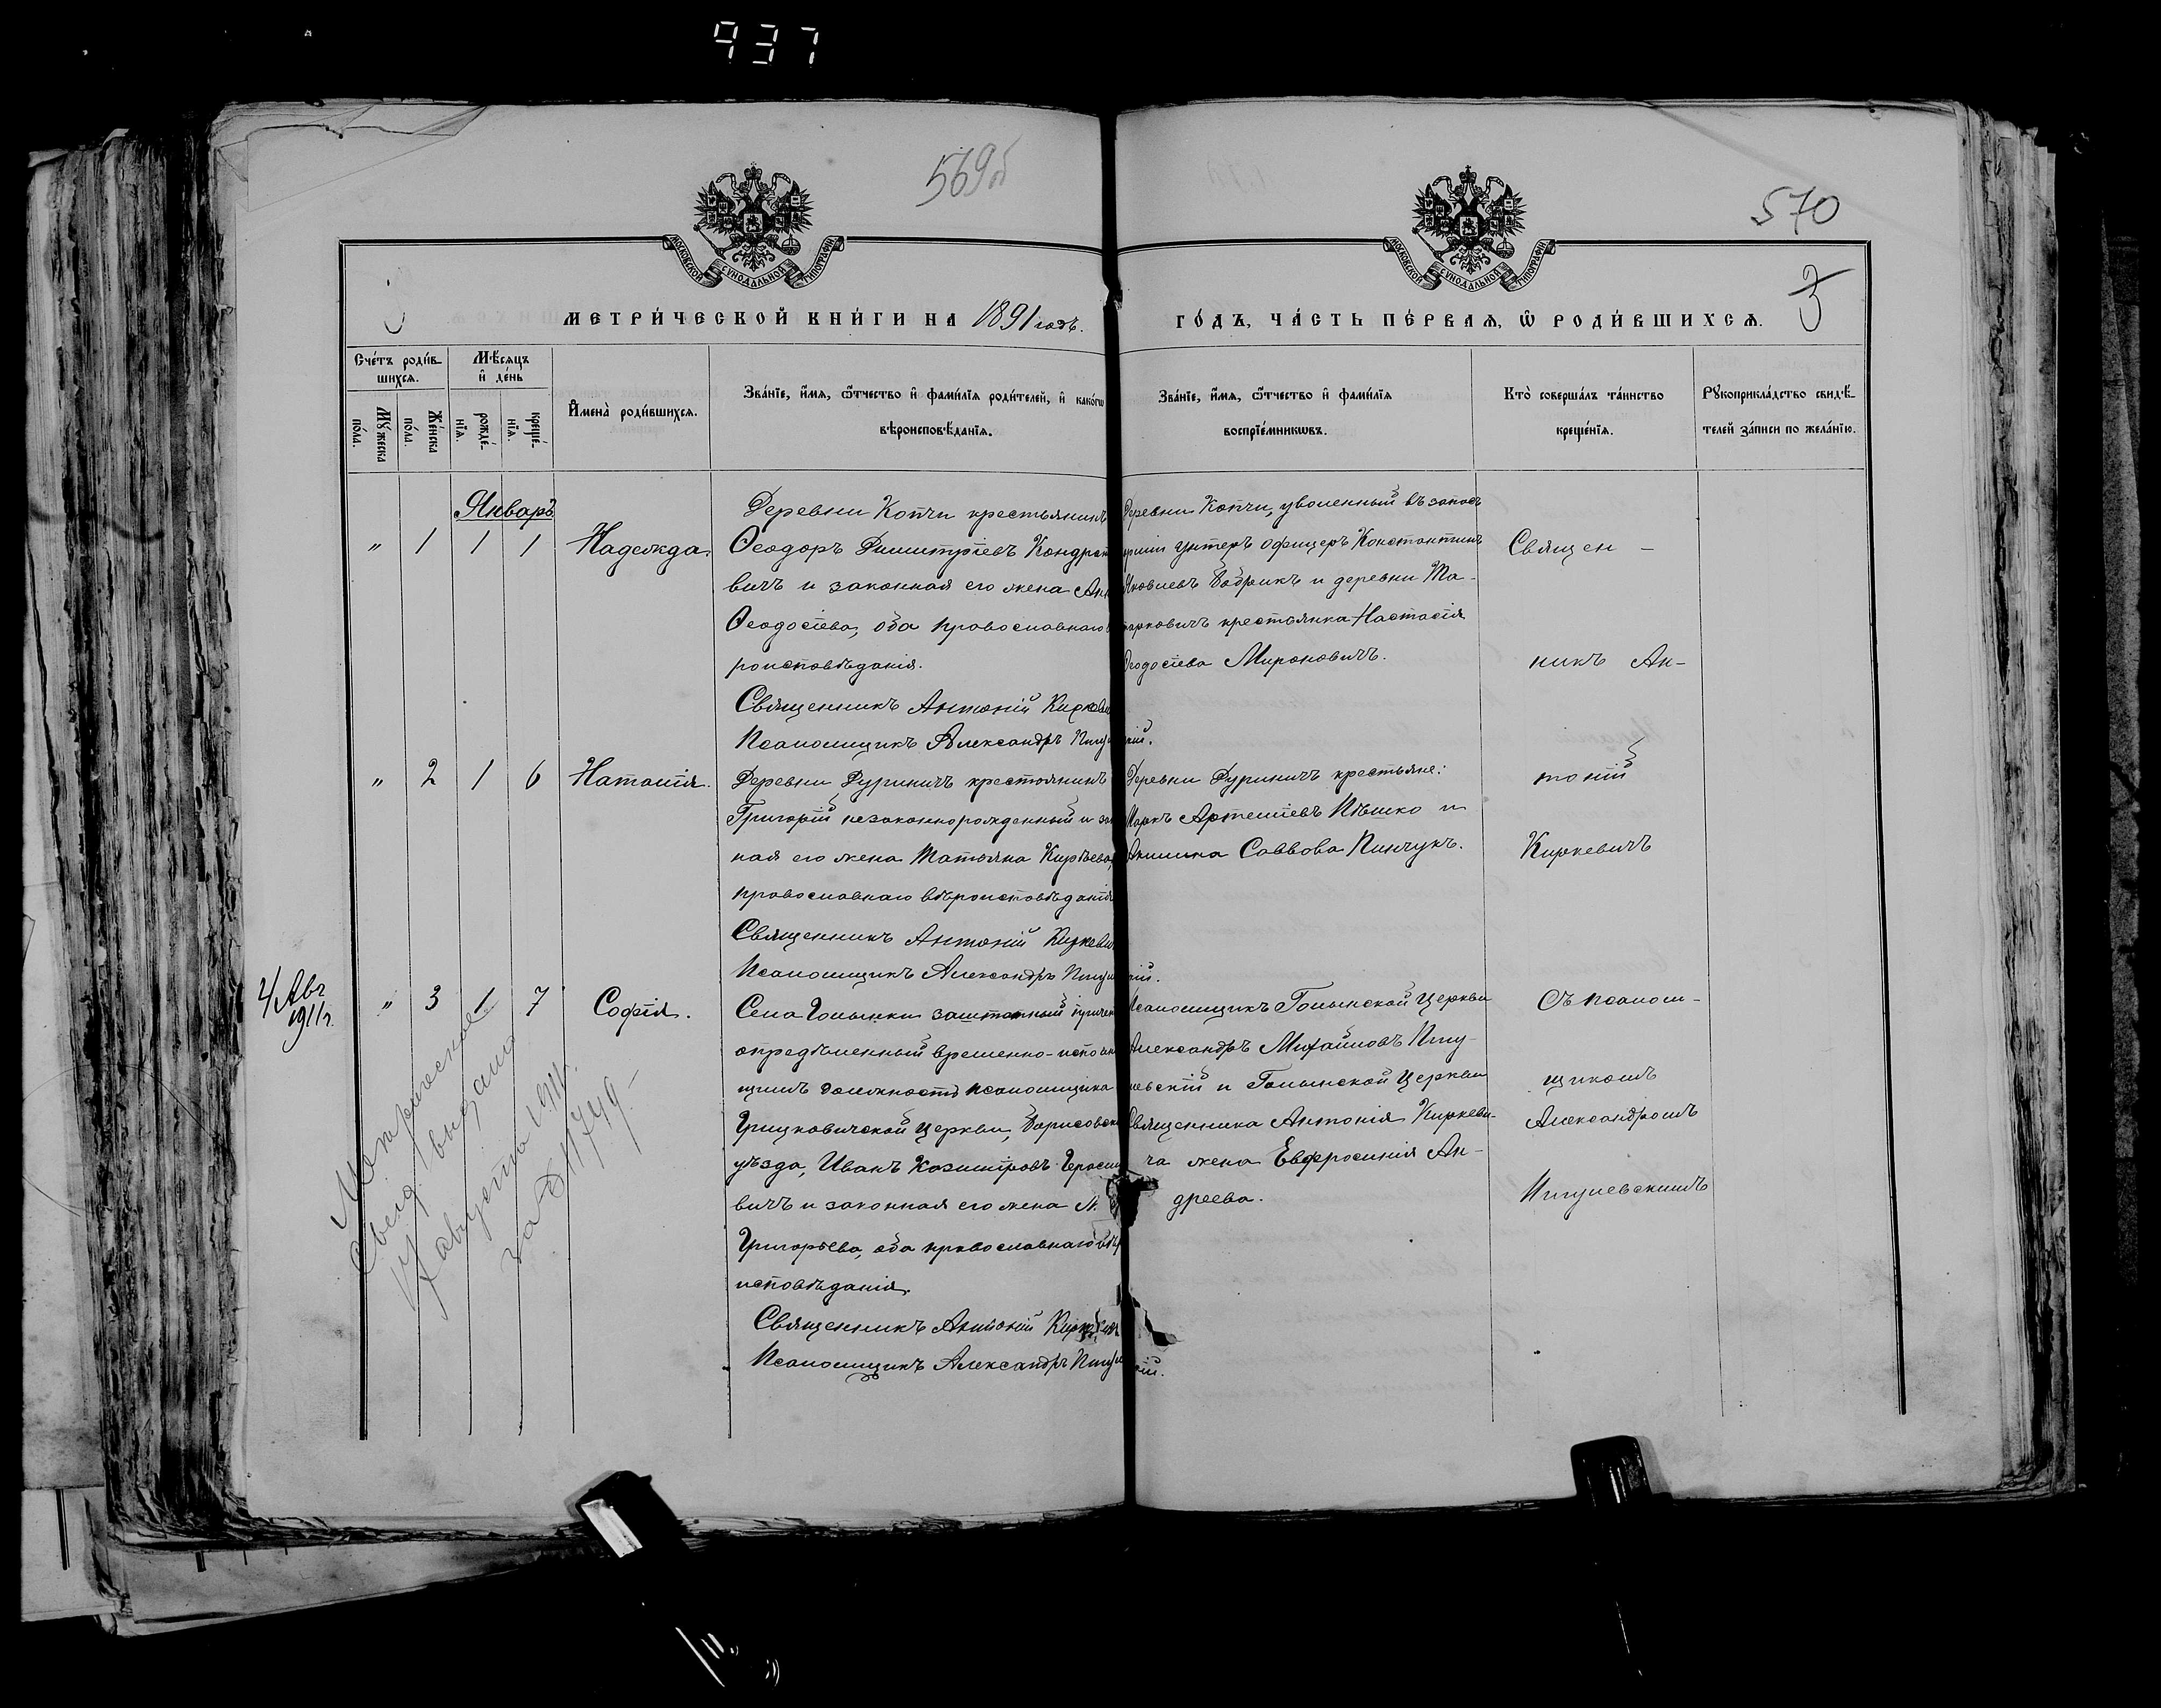 937
569об
570
МОСКОВСКОЙ СѴНОДАЛЬНОЙ ТИПОГРАФІИ
МОСКОВСКОЙ СѴНОДАЛЬНОЙ ТИПОГРАФІИ
3
МЕТРИ́ЧЕСКОЙ КНИ́ГИ НА 1891 годъ.
ГО́ДЪ, ЧА́СТЬ ПЕ́РВАЯ, Ѡ҆ РОДИ́ВШИХСЯ.
Сче́тъ роди́в-
шихся.
Мѣ́сяцъ
и҆ де́нь
Му́жеска
по́ла.
Же́нска
по́ла.
рожде́-
нія.
креще́-
нія.
И҆мена̀ роди́вшихся.
Зва́нїе, и҆́мя, ѻ҆́тчество и҆ фами́лїя роди́телей, и҆ како́гѡ
вѣроисповѣ́данїя.
Зва́нїе, и҆́мя, ѻ҆́тчество и҆ фами́лїя
воспрїе́мникѡвъ.
Кто̀ соверша́лъ та́инство
креще́нїя.
Рꙋкоприкла́дство свидѣ́-
телей за́писи по жела́нїю.
Январь
" 1 1 1 Надежда.
Деревни Копчи крестьянинъ
Ѳеодоръ Димитріевъ Кондрат
вичъ и законная его жена Ан
Ѳеодосіева, оба православнаго в
роисповѣданія.
Священникъ Антоній Киркеви
Псаломщикъ Александръ Пигу
Деревни Копчи, уволенный въ запасъ
унтеръ офицеръ Константинъ
Яковлевъ Бобрикъ и деревни Та-
тарковичъ крестьянка Настасія
Ѳеодосіева Мироновичъ.
кій.
Священ -
никъ Ан-
" 2 1 6 Наталія.
Деревни Дуриничъ крестьянинъ
Григорій незаконнорожденный и зак
ная его жена Татьяна Кирѣева,
православнаго вѣроисповѣданія
Священникъ Антоній Киркеви
Псаломщикъ Александръ Пигул
Деревни Дуриничъ крестьяне:
Маркъ Артеміевъ Пѣшко и
Акилина Саввова Пинчукъ.
кій.
тоній
Киркевичъ
4 Авг
1911 г.
" 3 1 7 Софія.
Села Голынки заштатный причет
опредѣленный временно-исполн
щимъ должность псаломщика
Грицковичской Церкви, Борисовск
уѣзда, Иванъ Казиміровъ Гераси
вичъ и законная его жена М
Григорьева, оба православнаго вѣр
исповѣданія.
Священникъ Антоній Киркевич
Псаломщикъ Александръ Пигул
Псаломщикъ Голынской Церкви
Александръ Михайловъ Пигу-
левскій и Голынской Церкви
Священника Антонія Киркеви-
ча жена Евфросинія Ан-
дреева.
скій.
Съ псалом-
щикомъ
Александромъ
Пигулевскимъ
Метрическое
свид. выдано
4 августа 1911 г.
за № 11749.